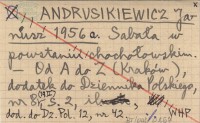 ANDRUSIKIEWICZ Ja-
nusz 1956a Sabała w
powstaniu chochołowskim
— Od A do Z (Kraków),
dodatek do Dziennika Polskiego,
nr 8, S. 2, il.
dod. do Dz. Pol. 12, nr 42. WHP